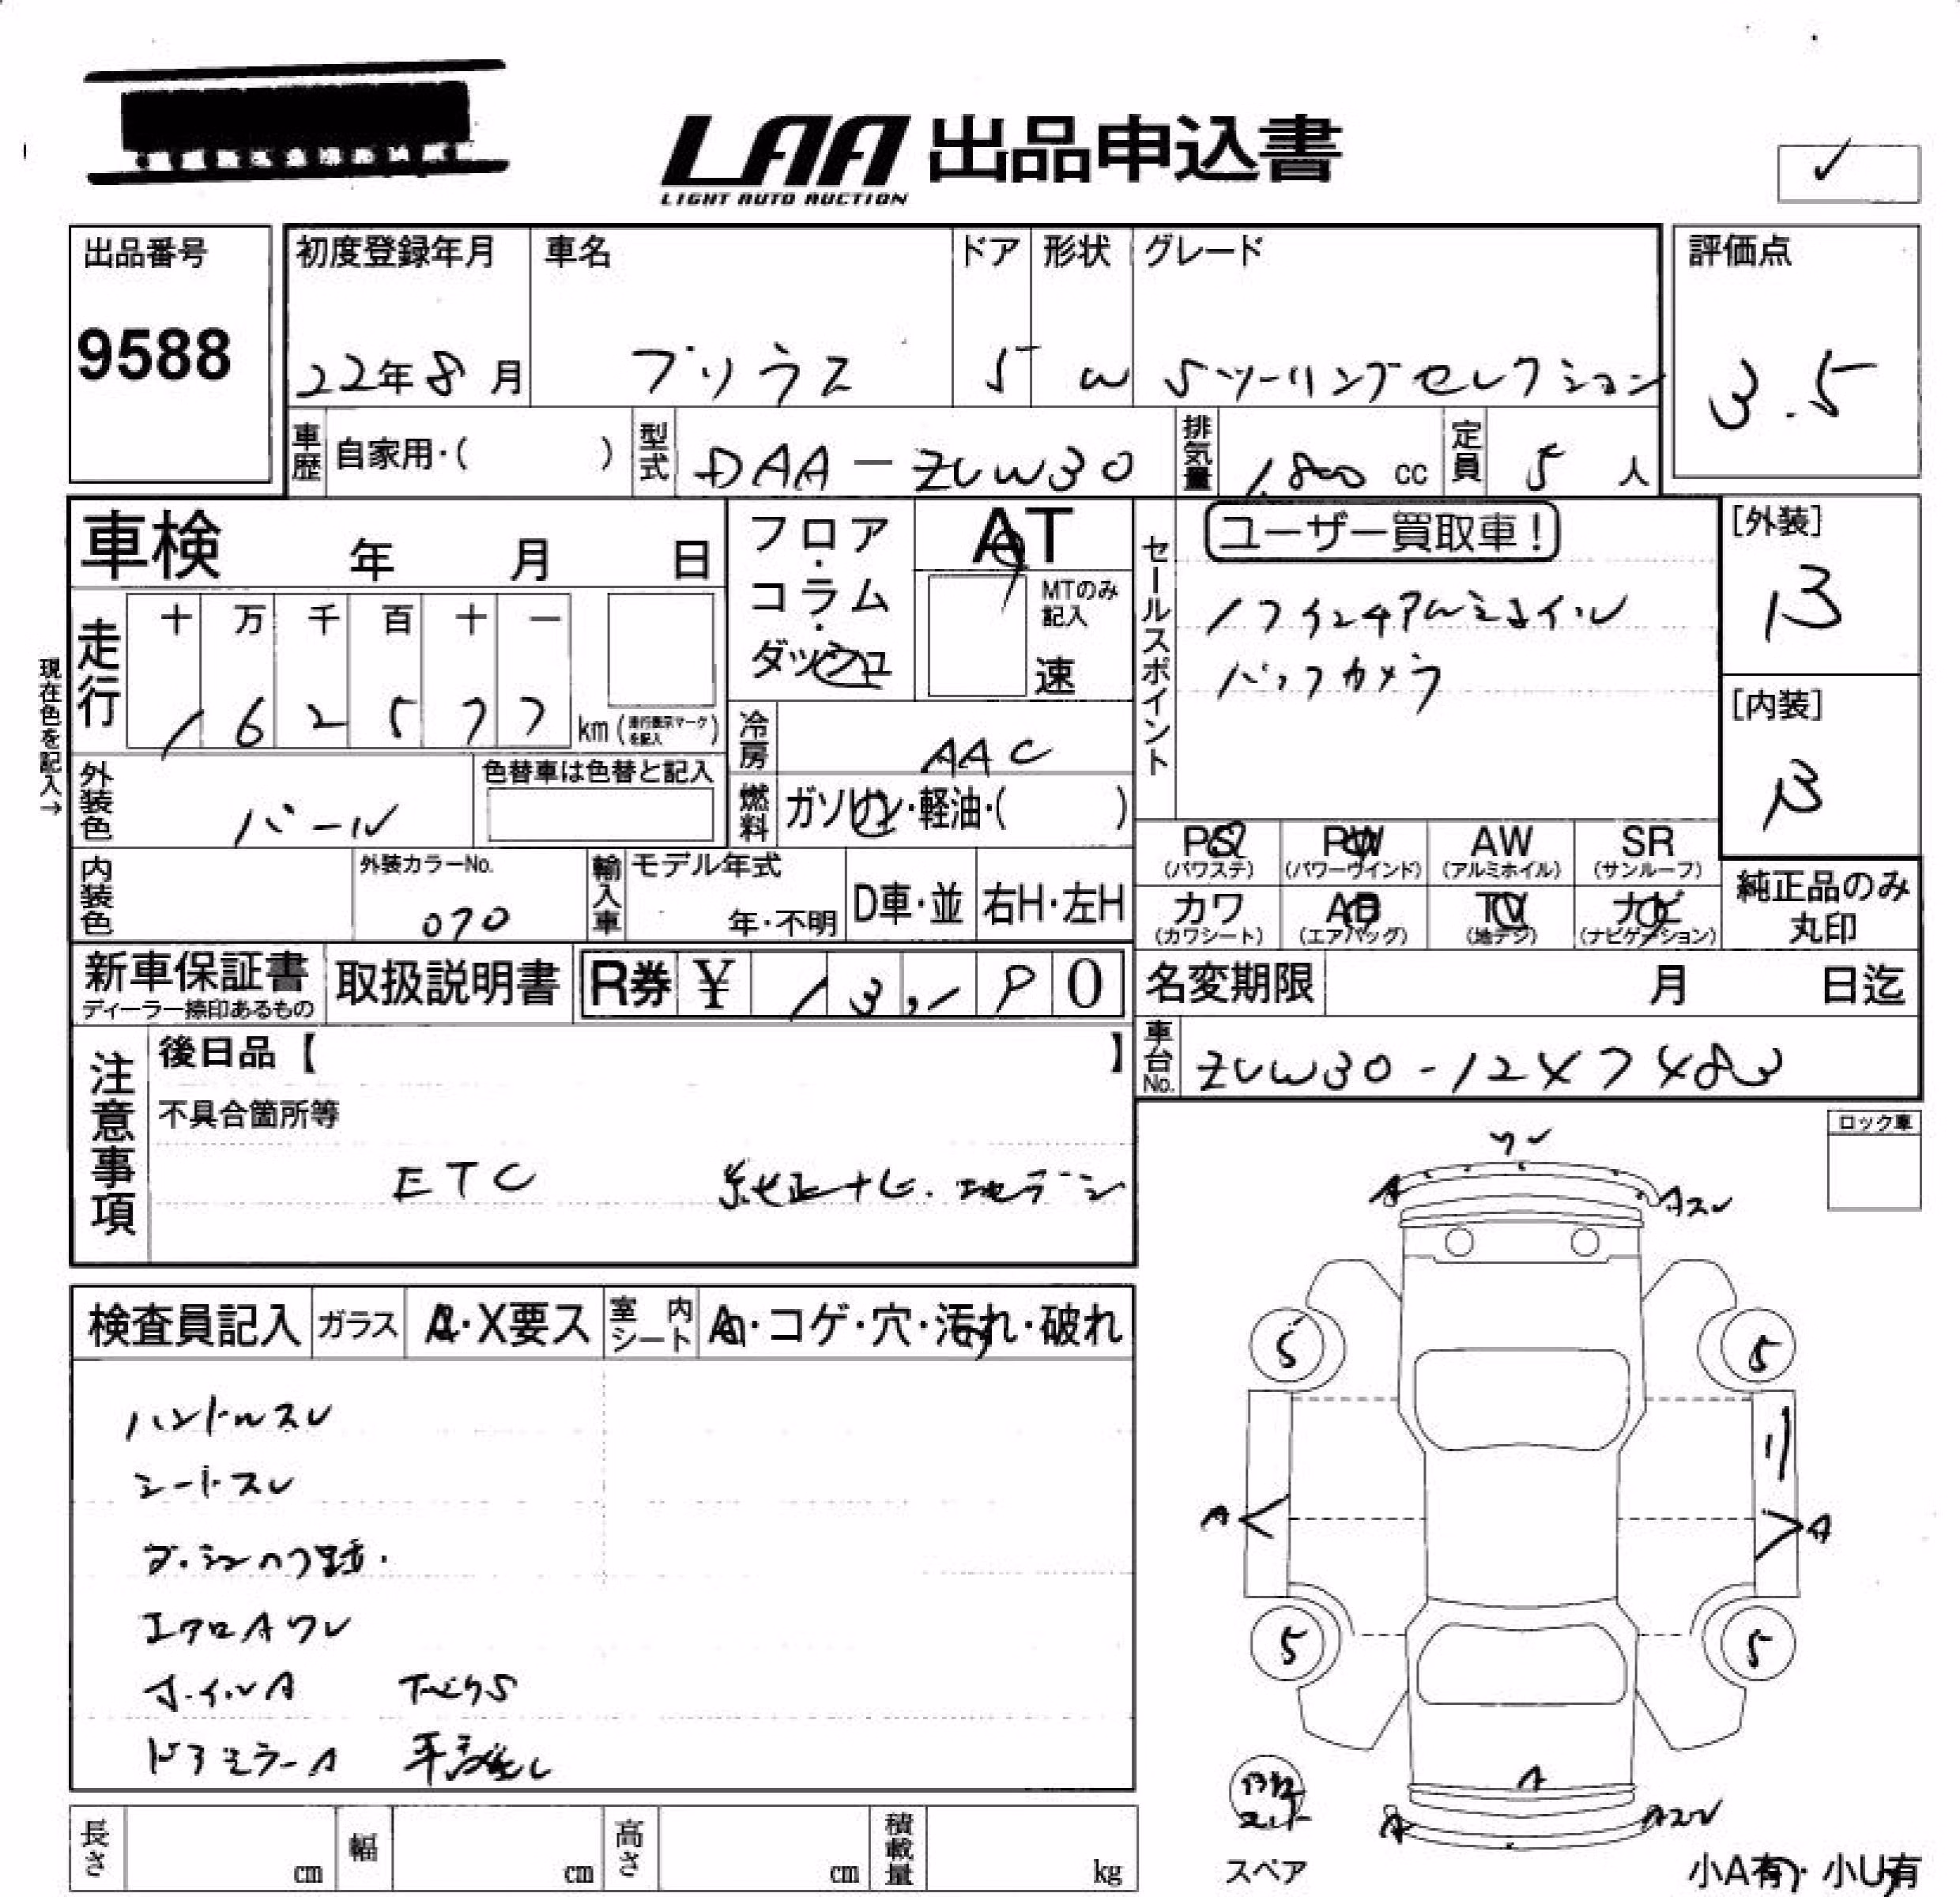 LAA 出品申込書
LIGHT AUTO AUCTION
出品番号
9588
初度登録年月
22年8月
車名
プリウス
ドア
5
形状
W
グレード
Sツーリングセレクション
評価点
3.5
車歴 自家用・( )
型式 DAA-ZVW30
排気量 1,800 cc
定員 5 人
車検 年 月 日
フロア・コラム・ダッシュ
AT
MTのみ記入
速
セールスポイント
ユーザー買取車!
17インチアルミホイル
バックカメラ
[外装]
B
[内装]
B
現在色を記入→
走行
十 万 千 百 十 一
1 6 2 5 7 7 km (走行表示マークを記入)
冷房 AAC
外装色 パール
色替車は色替と記入
燃料 ガソリン・軽油・( )
PS (パワステ)
PW (パワーウインド)
AW (アルミホイル)
SR (サンルーフ)
カワ (カワシート)
AB (エアバッグ)
TV (地デジ)
ナビ (ナビゲーション)
純正品のみ丸印
内装色
外装カラーNo.
070
輸入車
モデル年式
年・不明
D車・並
右H・左H
新車保証書
ディーラー捺印あるもの
取扱説明書
R券 ¥ 13,190
名変期限 月 日迄
車台No. ZVW30-1247483
注意事項
後日品【 】
不具合箇所等
ETC 純正ナビ・地デジ
ロック車
検査員記入
ガラス A・X要ス
室内シート A・コゲ・穴・汚れ・破れ
ハンドルスレ
シートスレ
エアロAワレ
ホイルA 下廻りS
ドアミラーA
ワレ
A
Aスレ
5
5
リ
A
A
5
5
A
A
Aスレ
スペア
小A有・小U有
長さ cm
幅 cm
高さ cm
積載量 kg